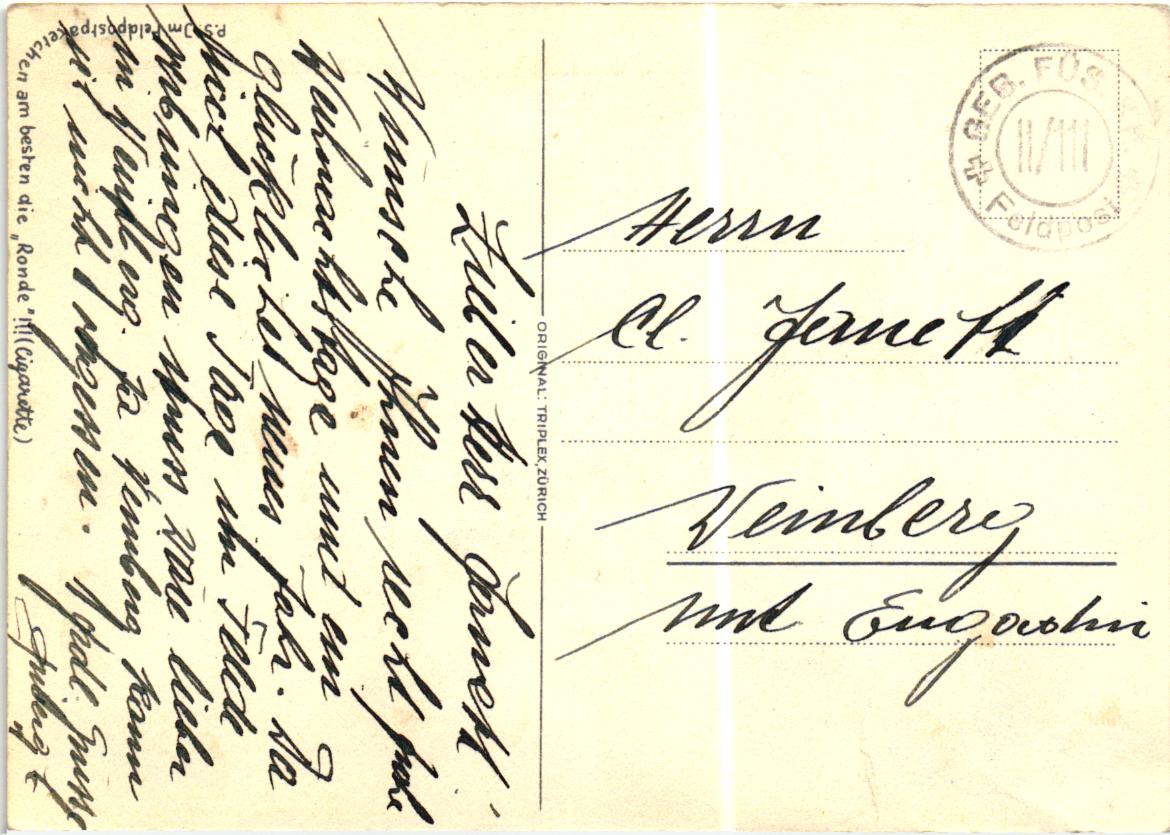 Lieber Herr Jenett!
Wünsche Ihnen recht frohe
Weihnachtstage und ein
glückliches neues Jahr. Da
ich diese Tage im Felde
verbringen muss wäre lieber
in Weinberg. Ja Weinberg kann
ich nicht vergessen.
Grüsse
P.S. Im Feldpostpaketchen am besten die „Ronde"!!! (Cigarette)
ORIGINAL: TRIPLEX, ZÜRICH
GEB. FÜS.
II/111
Feldpost
Herrn
Cl. Jenett
Weinberg
Unt Engadin